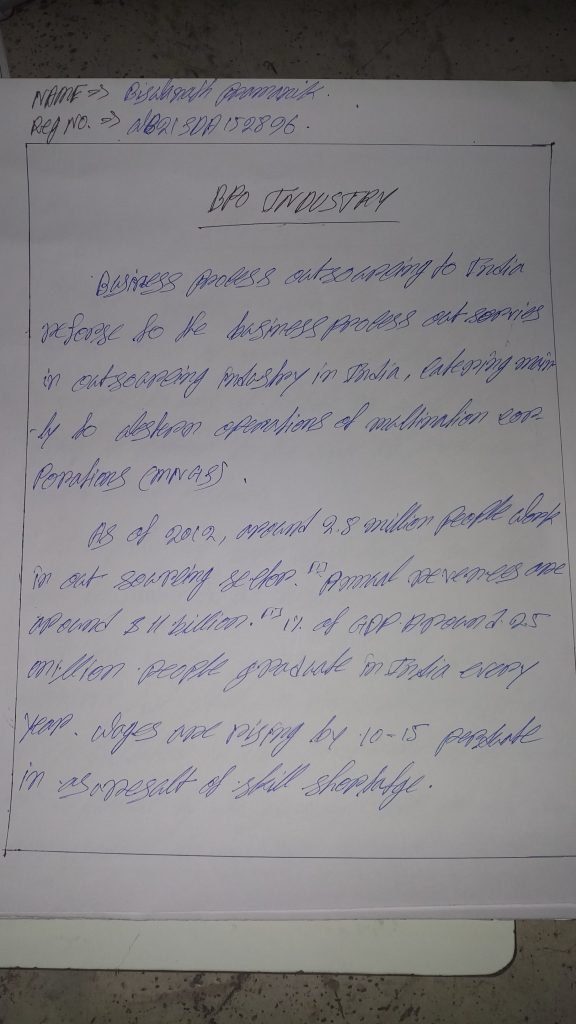 NAME => Biswanath Pramanik.
Reg NO. => WB21SDA152896.
BPO INDUSTRY
Business process outsourcing to India
reforse to the business process out servies
in outsourcing industry in India, catering main
-ly to western operations of multination cor-
porations (MNGS).
As of 2012, around 2.8 million people work
in out sourcing sector. [1] Annual revenees are
around $ 11 billion. [1] 1% of GDP. Around 2.5
million people graduate in India every
year. Wages are rising by 10-15
in as result of skill shortafge.